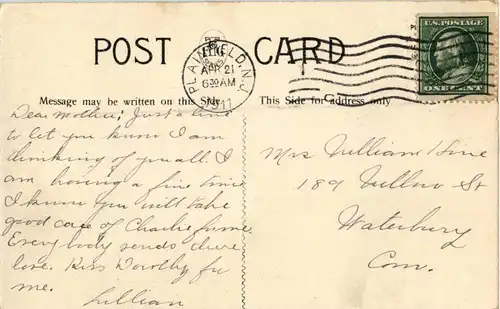 POST CARD
PLAINFIELD, N.J.
APR 21
6 30 AM
1911
U.S. POSTAGE
ONE CENT
Message may be written on this Side
This Side for address only
Dear Mother: Just a line
to let you know I am
thinking of you all. I
am having a fine time
I know you will take
good care of Charlie for me.
Everybody sends there
love. Kiss Dorothy for
me.
Lillian
Mrs William
189 Willow St
Waterbury
Conn.